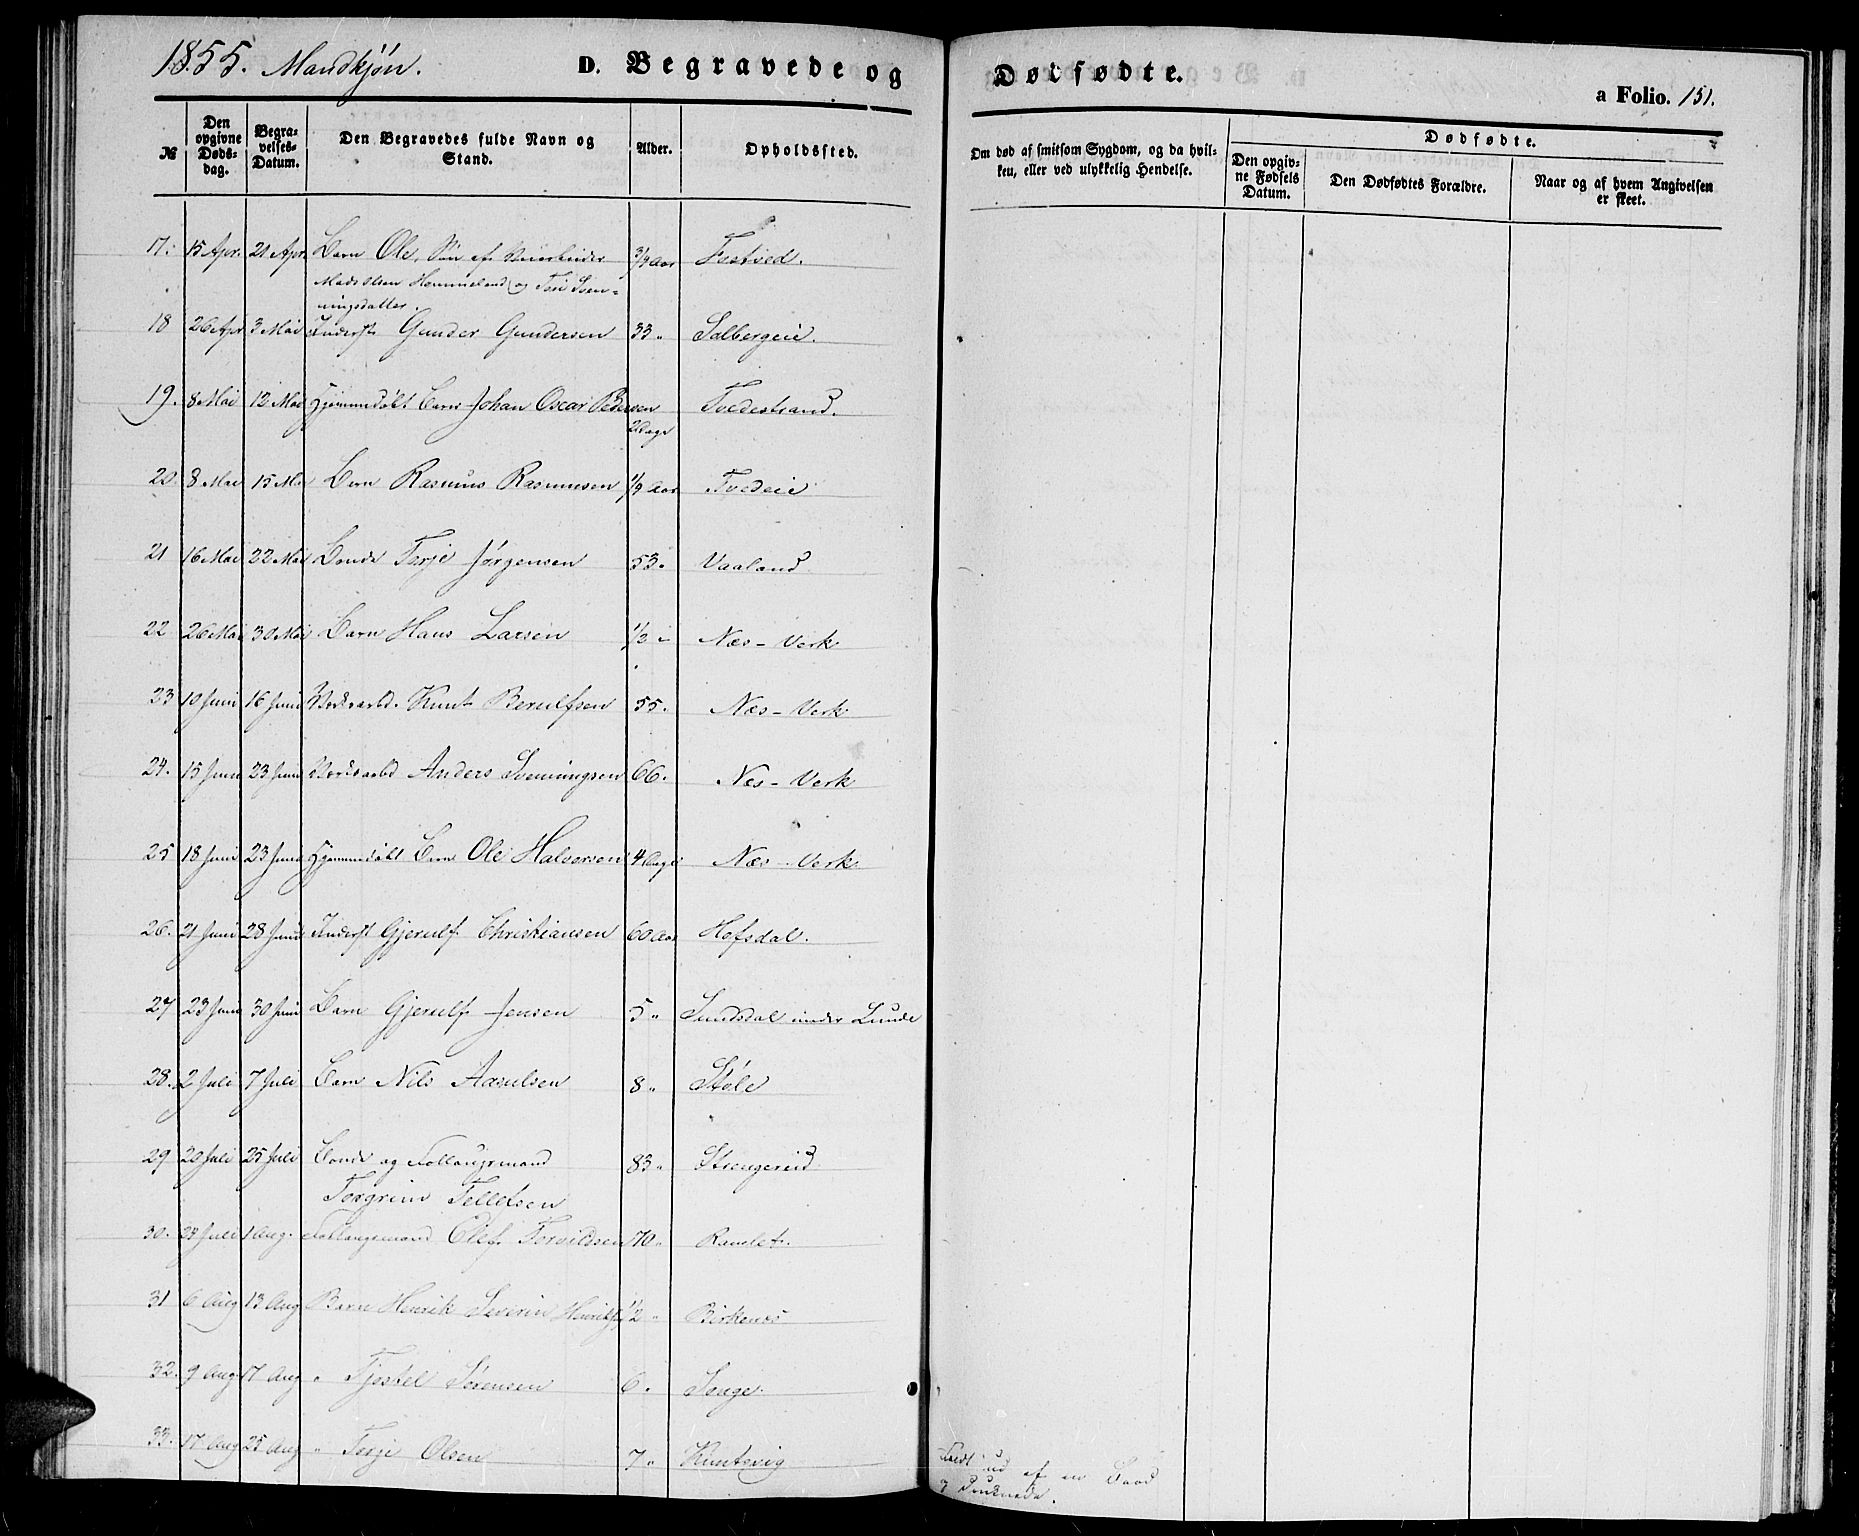 1855. Mandkjön. D. Begravede og Dødfødte. a Folio. 151.
№
Den opgivne Døds-dag.
Begra-velses-Datum.
Den Begravedes fulde Navn og Stand.
Alder.
Opholdssted.
Om død af smitsom Sygdom, og da hvil-ken, eller ved ulykkelig Hendelse.
Dødfødte.
Den opgiv-ne Fødsels Datum.
Den Dødfødtes Forældre.
Naar og af hvem Angivelsen er skeet.
17. 15 Apr. 21 Apr. Barn Ole, Søn af 3/4 Aar Fostved.
Mads Olsen Hommeland og Tori Sven-
ningsdatter.
18 26 Apr 3 Mai Inderst Gunder Gundersen 33 " Solbergeie.
19. 8 Mai 12 Mai Hjemmedøbt Barn Johan Oscar Pedersen Tvedestrand.
2 Dage
20 8 Mai 15 Mai Barn Rasmus Rasmusen Aar Tvedeie
21 16 Mai 22 Mai Bonde Terje Jørgensen 53 " Vaaland
22 26 Mai 30 Mai Barn Hans Larsen 1/2 " Næs-Verk
23 10 Juni 16 Juni Verksarbd. Knut Berulfsen 55. Næs-Verk
24. 15 Juni 23 Juni Verksarbd Anders Svenningsen 66. Næs-Verk
25 18 Juni 23 Juni Hjemmedøbt Barn Ole Halvorsen 4 Dage Næs-Verk
26. 21 Juni 28 Juni Inderst Gjerulf Christiansen 60 Aar Hofsdal.
27 23 Juni 30 Juni Barn Gjerulf Jensen 5 " Sundsdal under Lunde
28. 2 Juli 7 Juli Barn Nils Aasulsen 8 " Støle
29 20 Juli 25 Juli Bonde og Follaugsmand 83 " Strengereid
Torgrim Tellefsen
30. Juli 1 Aug. Follaugsmand Olef Torvildsen 70 " Ramlet.
31 6 Aug 13 Aug Barn Henrik Severin Henriksen 1/2 " Birkenes
32. 9 Aug. 17 Aug " Tjøstel Sørensen 6 " Songe.
33. 17 Aug 25 Aug " Terje Olsen 7 " Knutevig
Faldt ud af en Baad
og druknede.